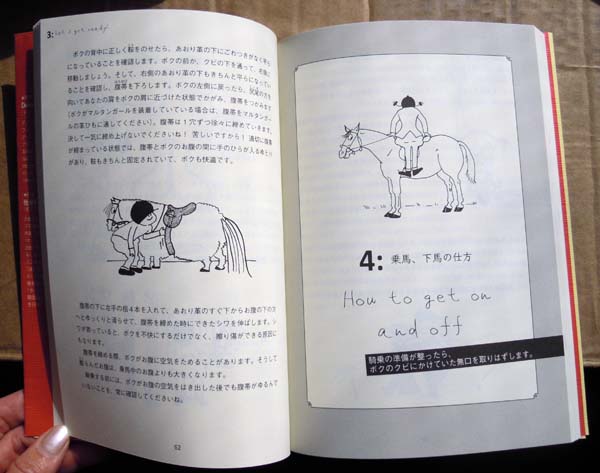 3: Let's get ready!
ボクの背中に正しく鞍をのせたら、あおり革の下にごわつきがなく平ら
になっていることを確認します。ボクの前か、クビの下を通って、右側に
移動しましょう。そして、右側のあおり革の下もきちんと平らになってい
ることを確認し、腹帯を下ろします。ボクの左側に戻ったら、尻尾の方を
向いてあなたの肩をボクの肩に近づけた状態でかがみ、腹帯をつかみます
(ボクがマルタンガールを装着していしている場合は、腹帯をマルタンガー
ルの革ひもに通してください)。腹帯は1穴ずつ徐々に締めていきます。
決して一気に締め上げないでくださいね!苦しいですから!適切に腹帯
が締まっている状態では、腹帯とボクのお腹の間に手のひらが入るゆとり
があり、鞍もきちんと固定されていて、ボクも快適です。
腹帯の下に右手の指4本を入れて、あおり革のすぐ下からお腹の下の方
へとゆっくりと滑らせて、腹帯を締めた時にできたシワを伸ばします。シ
ワがあっていると、ボクを不快にするだけでなく、擦り傷ができる原因に
もなります。
腹帯を締める際、ボクがお腹に空気をためることがあります。そうして
膨らんだお腹は、乗馬中のお腹よりも大きくなります。
騎乗する前には、ボクがお腹の空気をはき出した後でも腹帯がゆるんで
いないことを、常に確認してくださいね。
52
4: 乗馬、下馬の仕方
How to get on
and off
騎乗の準備が整ったら、
ボクのクビにかけていた無口を取りはずします。